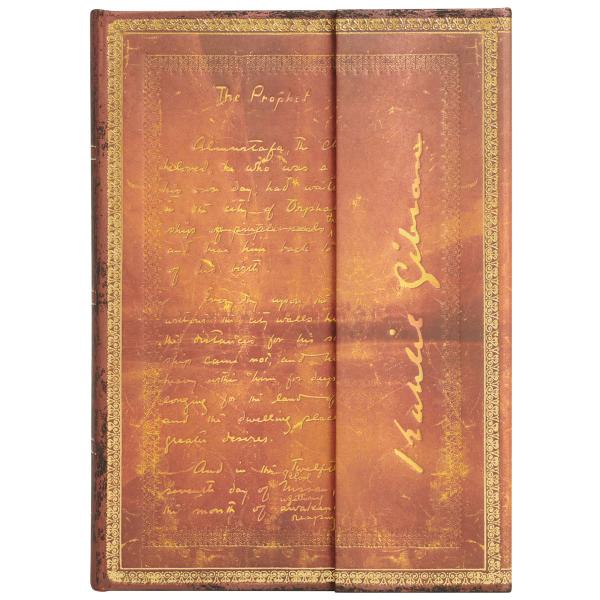 The Prophet
Almustafa, the Ch
beloved, he who was a
his own day, had waite
in the city of Orphal
ship of purple seeds, th
and bear him back to
of his birth.
Every day upon the
without the city walls he
the distances for his s
ship came not, and he
heavy within him, for deep
longing for the land of
and the dwelling place
greater desires.
And in the Twelfth
seventh day of Nissan,
the month of awaken
reaping
Kahlil Gibran